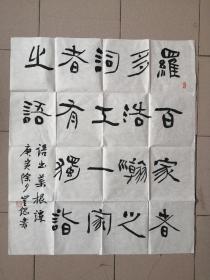 羅百家者
多浩瀚之
詞工一家
者有獨詣
之語
語出菜根譚
庚寅除夕